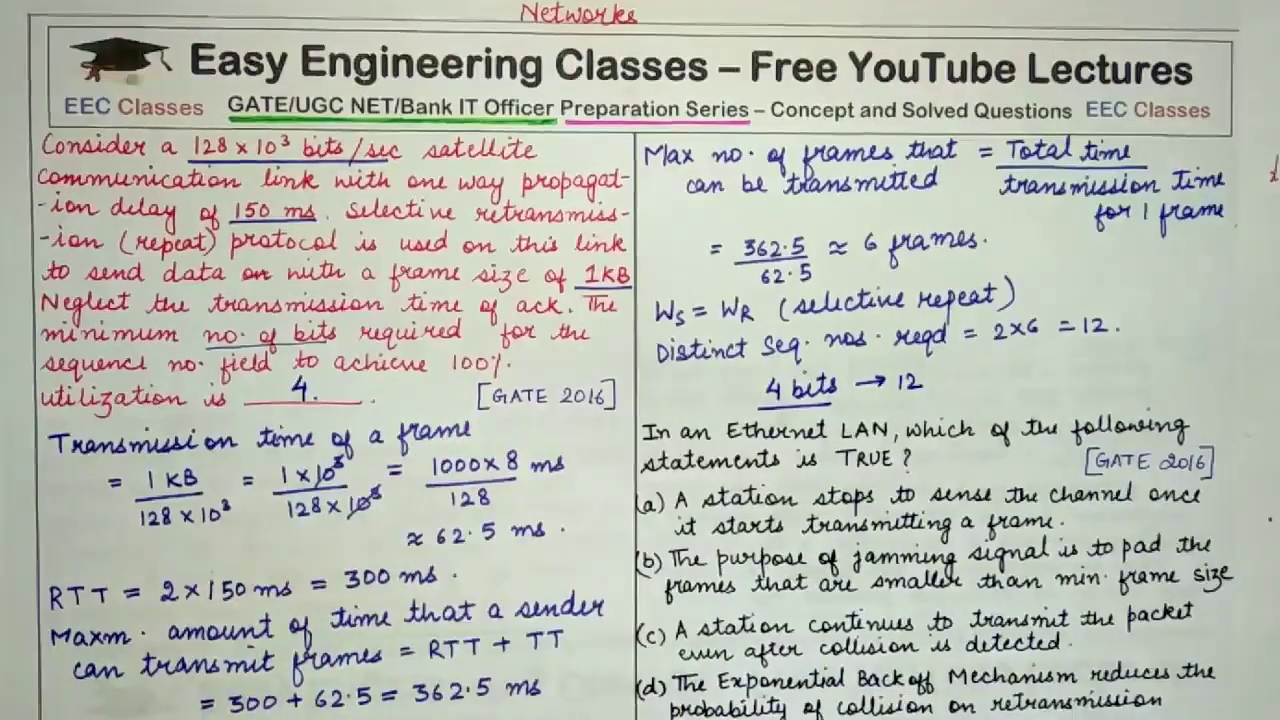 Networks
Easy Engineering Classes – Free YouTube Lectures
EEC Classes GATE/UGC NET/Bank IT Officer Preparation Series – Concept and Solved Questions EEC Classes
Consider a 128 × 10³ bits/sec satellite
communication link with one way propagat-
-ion delay of 150 ms. Selective retransmiss-
-ion (repeat) protocol is used on this link
to send data on with a frame size of 1KB
Neglect the transmission time of ack. The
minimum no. of bits required for the
sequence no. field to achieve 100%.
utilization is 4. .
[GATE 2016]
Transmission time of a frame
= 1 KB / 128 × 10³ = 1 × 10³ / 128 × 10³ = 1000 × 8 / 128 ms
≈ 62.5 ms .
RTT = 2 × 150 ms = 300 ms .
Maxm. amount of time that a sender
can transmit frames = RTT + TT
= 300 + 62.5 = 362.5 ms
Max no. of frames that = Total time
can be transmitted transmission time
for 1 frame
= 362.5 / 62.5 ≈ 6 frames.
Ws = WR (selective repeat)
Distinct Seq. nos. reqd = 2×6 = 12.
4 bits → 12
In an Ethernet LAN, which of the following
statements is TRUE? [GATE 2016]
(a) A station stops to sense the channel once
it starts transmitting a frame.
(b) The purpose of jamming signal is to pad the
frames that are smaller than min. frame size
(c) A station continues to transmit the packet
even after collision is detected.
(d) The Exponential Back off Mechanism reduces the
probability of collision on retransmission